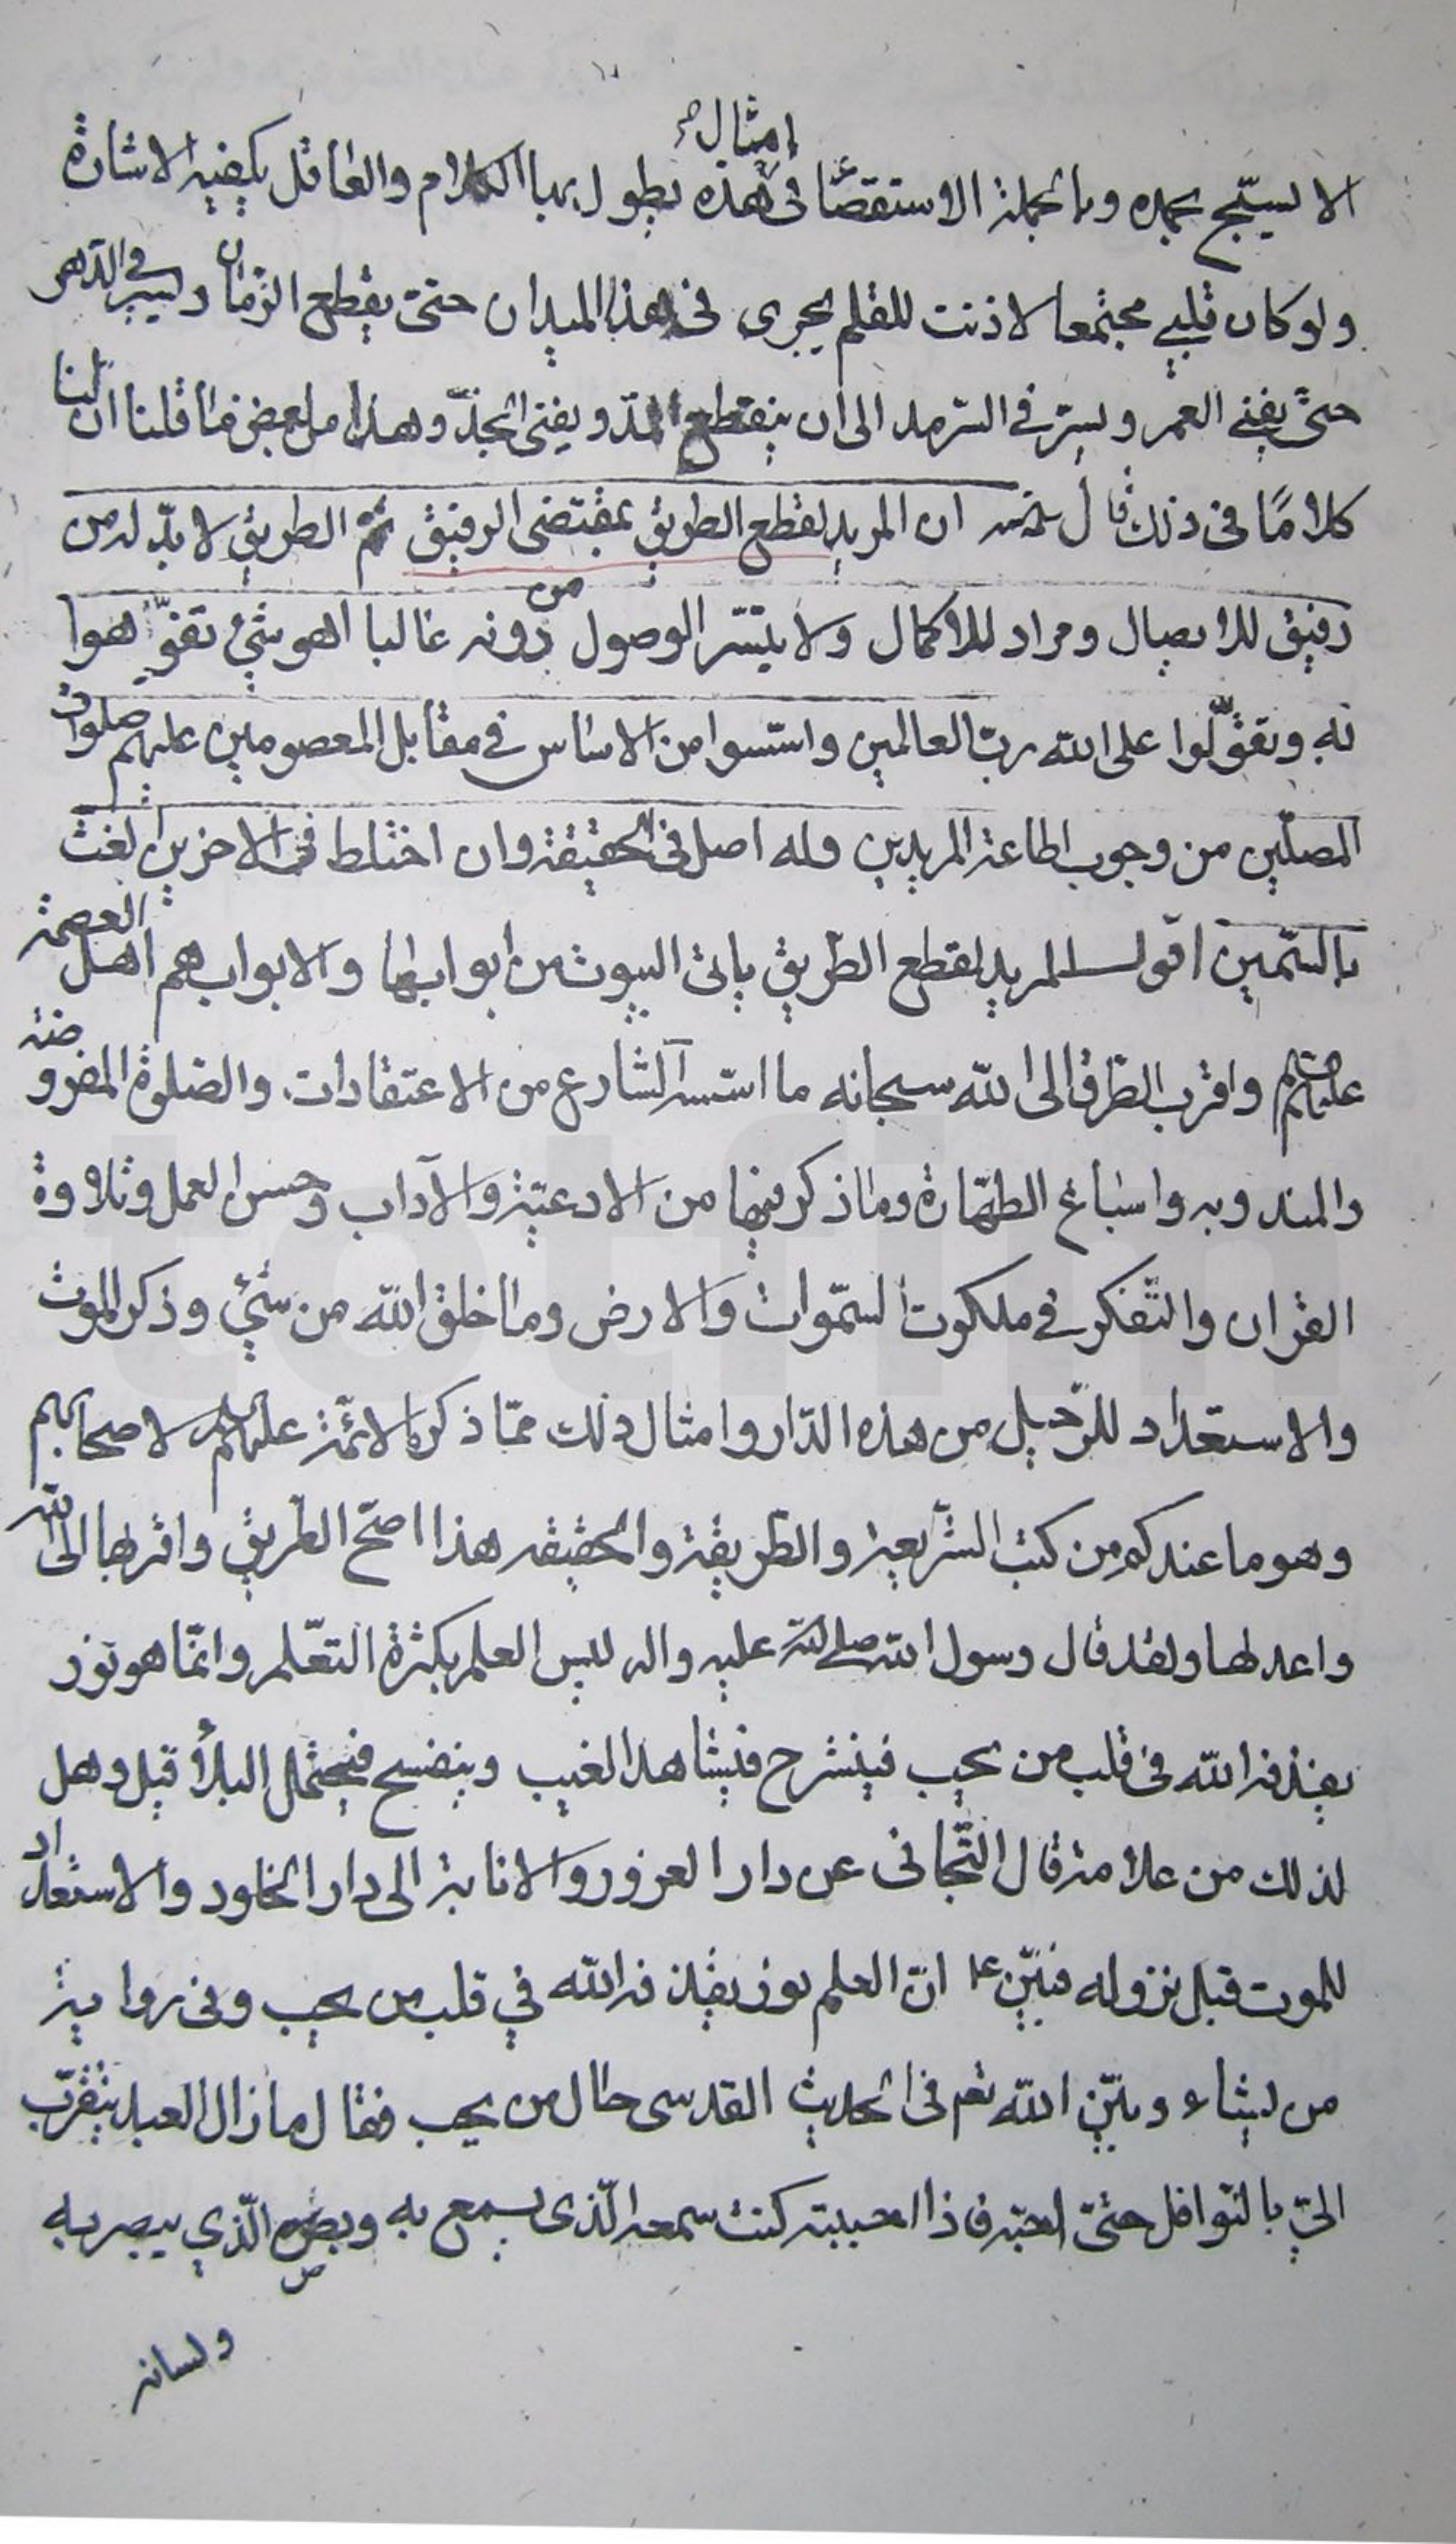 امثال
الا يسبّح بحمده وبالجملة الاستقصاء فى هذه يطول بها الكلام والعاقل يكفيه الاشارة
ولو كان قلبي مجتمعا لاذنت للقلم يجرى فى هذا الميدان حتى يقطع الزمان ويسير فى الدهر
حتى يفنى العمر ويسير فى السرمد الى ان ينقطع المدّ ويفنى الجدّ وهذا من بعض ما قلنا ان لنا
كلاما فى ذلك قال ان المريد لقطع الطريق بمقتضى الرفيق ثم الطريق لا بدّ له من
رفيق للايصال ومراد للاكمال ولا يتيسّر الوصول من دونه غالبا اهو شئ تفوّهوا
به وتقوّلوا على الله ربّ العالمين واسّسوا من الاساس فى مقابل المعصومين عليهم صلوات
المصلّين من وجوب اطاعة المريدين وله اصل فى الحقيقة وان اختلط فى الاخرين الغث
بالسّمين اقول المريد لقطع الطّريق ياتى البيوت من ابوابها والابواب هم اهل العصمة
عليهم السلم واقرب الطرق الى الله سبحانه ما اسّسه الشارع من الاعتقادات والصّلوة المفروضة
والمندوبه واسباغ الطهّارة وما ذكر فيها من الادعيّة والآداب وحسن العمل وتلاوة
القران والتّفكر فى ملكوت السّموات والارض وما خلق الله من شئ وذكر الموت
والاستعداد للرّحيل من هذه الدّار وامثال ذلك ممّا ذكره الائمّة عليهم السلم لاصحابهم
وهو ما عندكم من كتب الشّريعة والطّريقة والحقيقه هذا اصحّ الطّريق واقربها الى الله
واعدلها ولقد قال رسول الله صلى الله عليه واله ليس العلم بكثرة التعّلم وانّما هو نور
يقذفه الله فى قلب من يحب فينشرح فيشاهد الغيب وينفسح فيحتمل البلاء قيل وهل
لذلك من علامة قال التّجافى عن دار الغرور والانابة الى دار الخلود والاستعداد
للموت قبل نزوله فبيّن ع انّ العلم نور يقذفه الله في قلب من يحب وفى رواية
من يشاء وبيّن الله تعم فى الحديث القدسى حال من يحب فقال ما زال العبد يتقرّب
الىّ بالنّوافل حتىّ احبّه فاذا احببته كنت سمعه الّذى يسمع به وبصره الّذي يبصر به
ولسانه